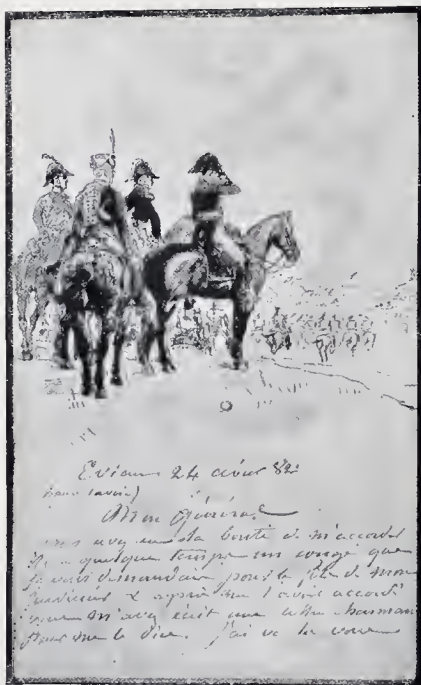 Evian 24 aout 82
Haute Savoie)
Mon Général
vous avez eu la bonté de m'accorder
il y a quelque temps un congé que
je vous demandais pour le fils de mon
& après me l'avoir accordé
vous m'avez écrit une lettre charmante
pour me le dire. j'ai vu les